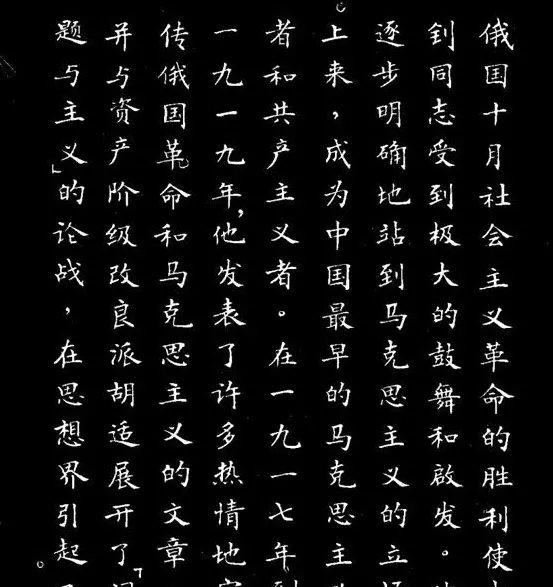 俄国十月社会主义革命的胜利使
到同志受到极大的鼓舞和啟发。
逐步明确地站到马克思主义的立
上来，成为中国最早的马克思主
者和共产主义者。在一九一七年到
一九一九年，他发表了许多热情地
传俄国革命和马克思主义的文章
并与资产阶级改良派胡适展开了「
题与主义」的论战，在思想界引起